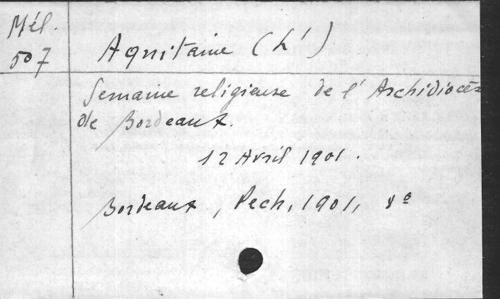 Mél.
507
Aquitaine (L')
Semaine religieuse de l'Archidiocèse
de Bordeaux.
12 Avril 1901.
Bordeaux, Pech, 1901, 8°